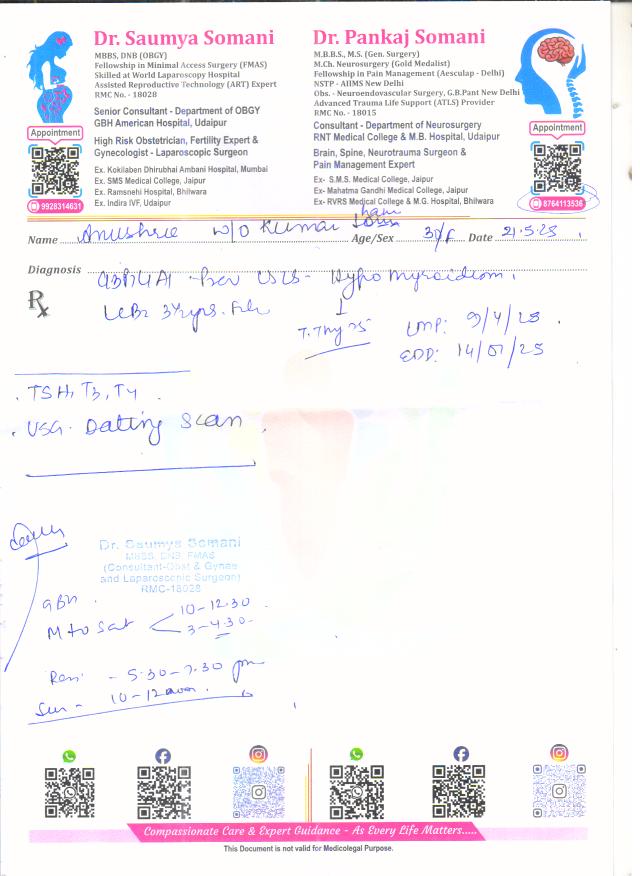 Dr. Saumya Somani
MBBS, DNB (OBGY)
Fellowship in Minimal Access Surgery (FMAS)
Skilled at World Laparoscopy Hospital
Assisted Reproductive Technology (ART) Expert
RMC No. - 18028
Senior Consultant - Department of OBGY
GBH American Hospital, Udaipur
High Risk Obstetrician, Fertility Expert &
Gynecologist - Laparoscopic Surgeon
Ex. Kokilaben Dhirubhai Ambani Hospital, Mumbai
Ex. SMS Medical College, Jaipur
Ex. Ramsnehi Hospital, Bhilwara
Ex. Indira IVF, Udaipur
Appointment
9928314631
Dr. Pankaj Somani
M.B.B.S., M.S. (Gen. Surgery)
M.Ch. Neurosurgery (Gold Medalist)
Fellowship in Pain Management (Aesculap - Delhi)
NSTP - AIIMS New Delhi
Obs. - Neuroendovascular Surgery, G.B.Pant New Delhi
Advanced Trauma Life Support (ATLS) Provider
RMC No. - 18015
Consultant - Department of Neurosurgery
RNT Medical College & M.B. Hospital, Udaipur
Brain, Spine, Neurotrauma Surgeon &
Pain Management Expert
Ex- S.M.S. Medical College, Jaipur
Ex- Mahatma Gandhi Medical College, Jaipur
Ex- RVRS Medical College & M.G. Hospital, Bhilwara
Appointment
8764113536
Name Anushree w/o Kumar Age/Sex 30/F Date 21.5.25
Diagnosis Hypothyroidism.
Rx
LMP: 9/4/25.
EDD: 14/01/25
. TSH, T3, T4.
. USG. Dating Scan.
Dr. Saumya Somani
MBBS, DNB, FMAS
(Consultant-Obst & Gynae
and Laparoscopic Surgeon)
RMC-18028
GBH
M to Sat 10-12.30
3-4.30
- 5.30-7.30 pm
Sun - 10-12
Compassionate Care & Expert Guidance - As Every Life Matters.....
This Document is not valid for Medicolegal Purpose.